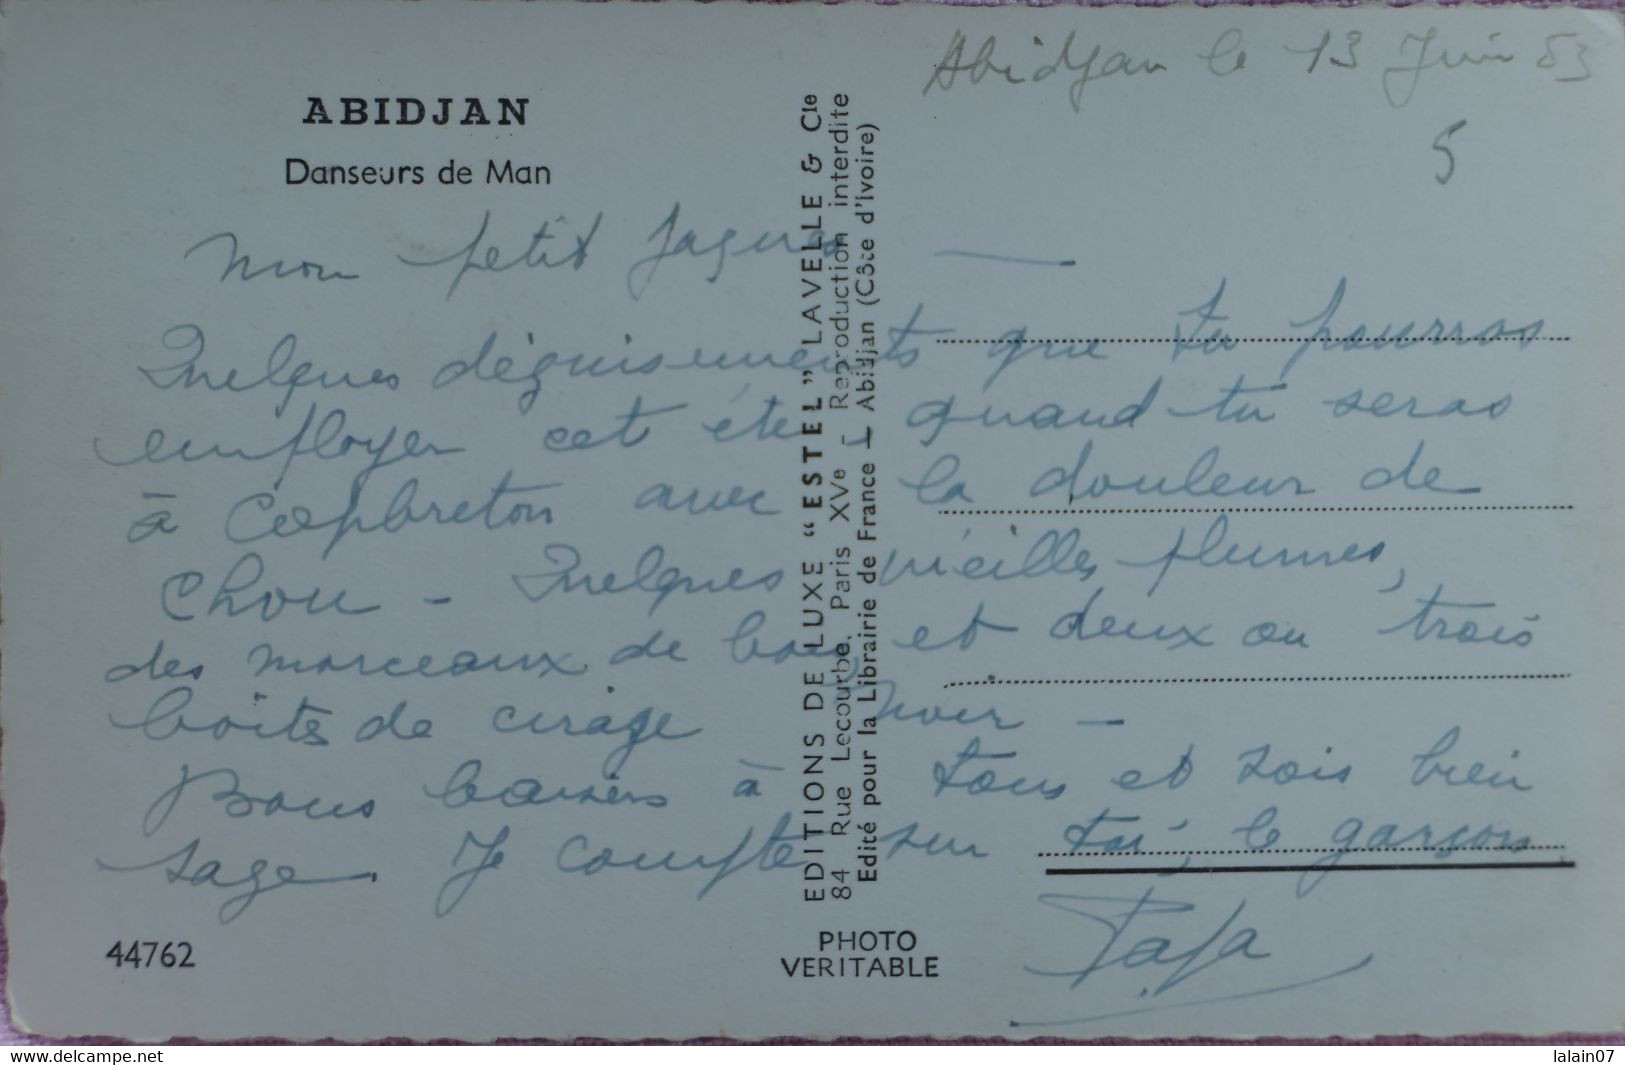 Abidjan le 13 Juin 53
5
ABIDJAN
Danseurs de Man
Mon petit Jaques —
Quelques déguisements que tu pourras
employer cet été quand tu seras
à Capbreton avec la douleur de
Chou - Quelques vieilles plumes,
des morceaux de bois et deux ou trois
boites de cirage noir -
Bons baisers à tous et sois bien
sage. Je compte sur toi, le garçon
Papa
EDITIONS DE LUXE "ESTEL" LAVELLE & Cie
84 Rue Lecourbe, Paris XVe - Reproduction interdite
Edité pour la Librairie de France — Abidjan (Côte d'Ivoire)
44762
PHOTO
VERITABLE
www.delcampe.net
lalain07